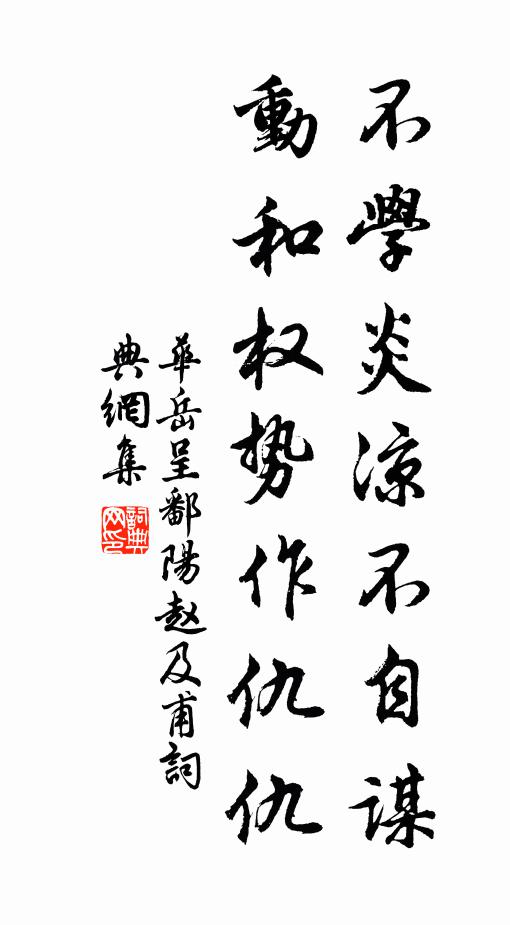 不學炎涼不自謀
動和权势作仇仇
華岳呈鄱陽赵及甫詞
典網集
詞典
网印